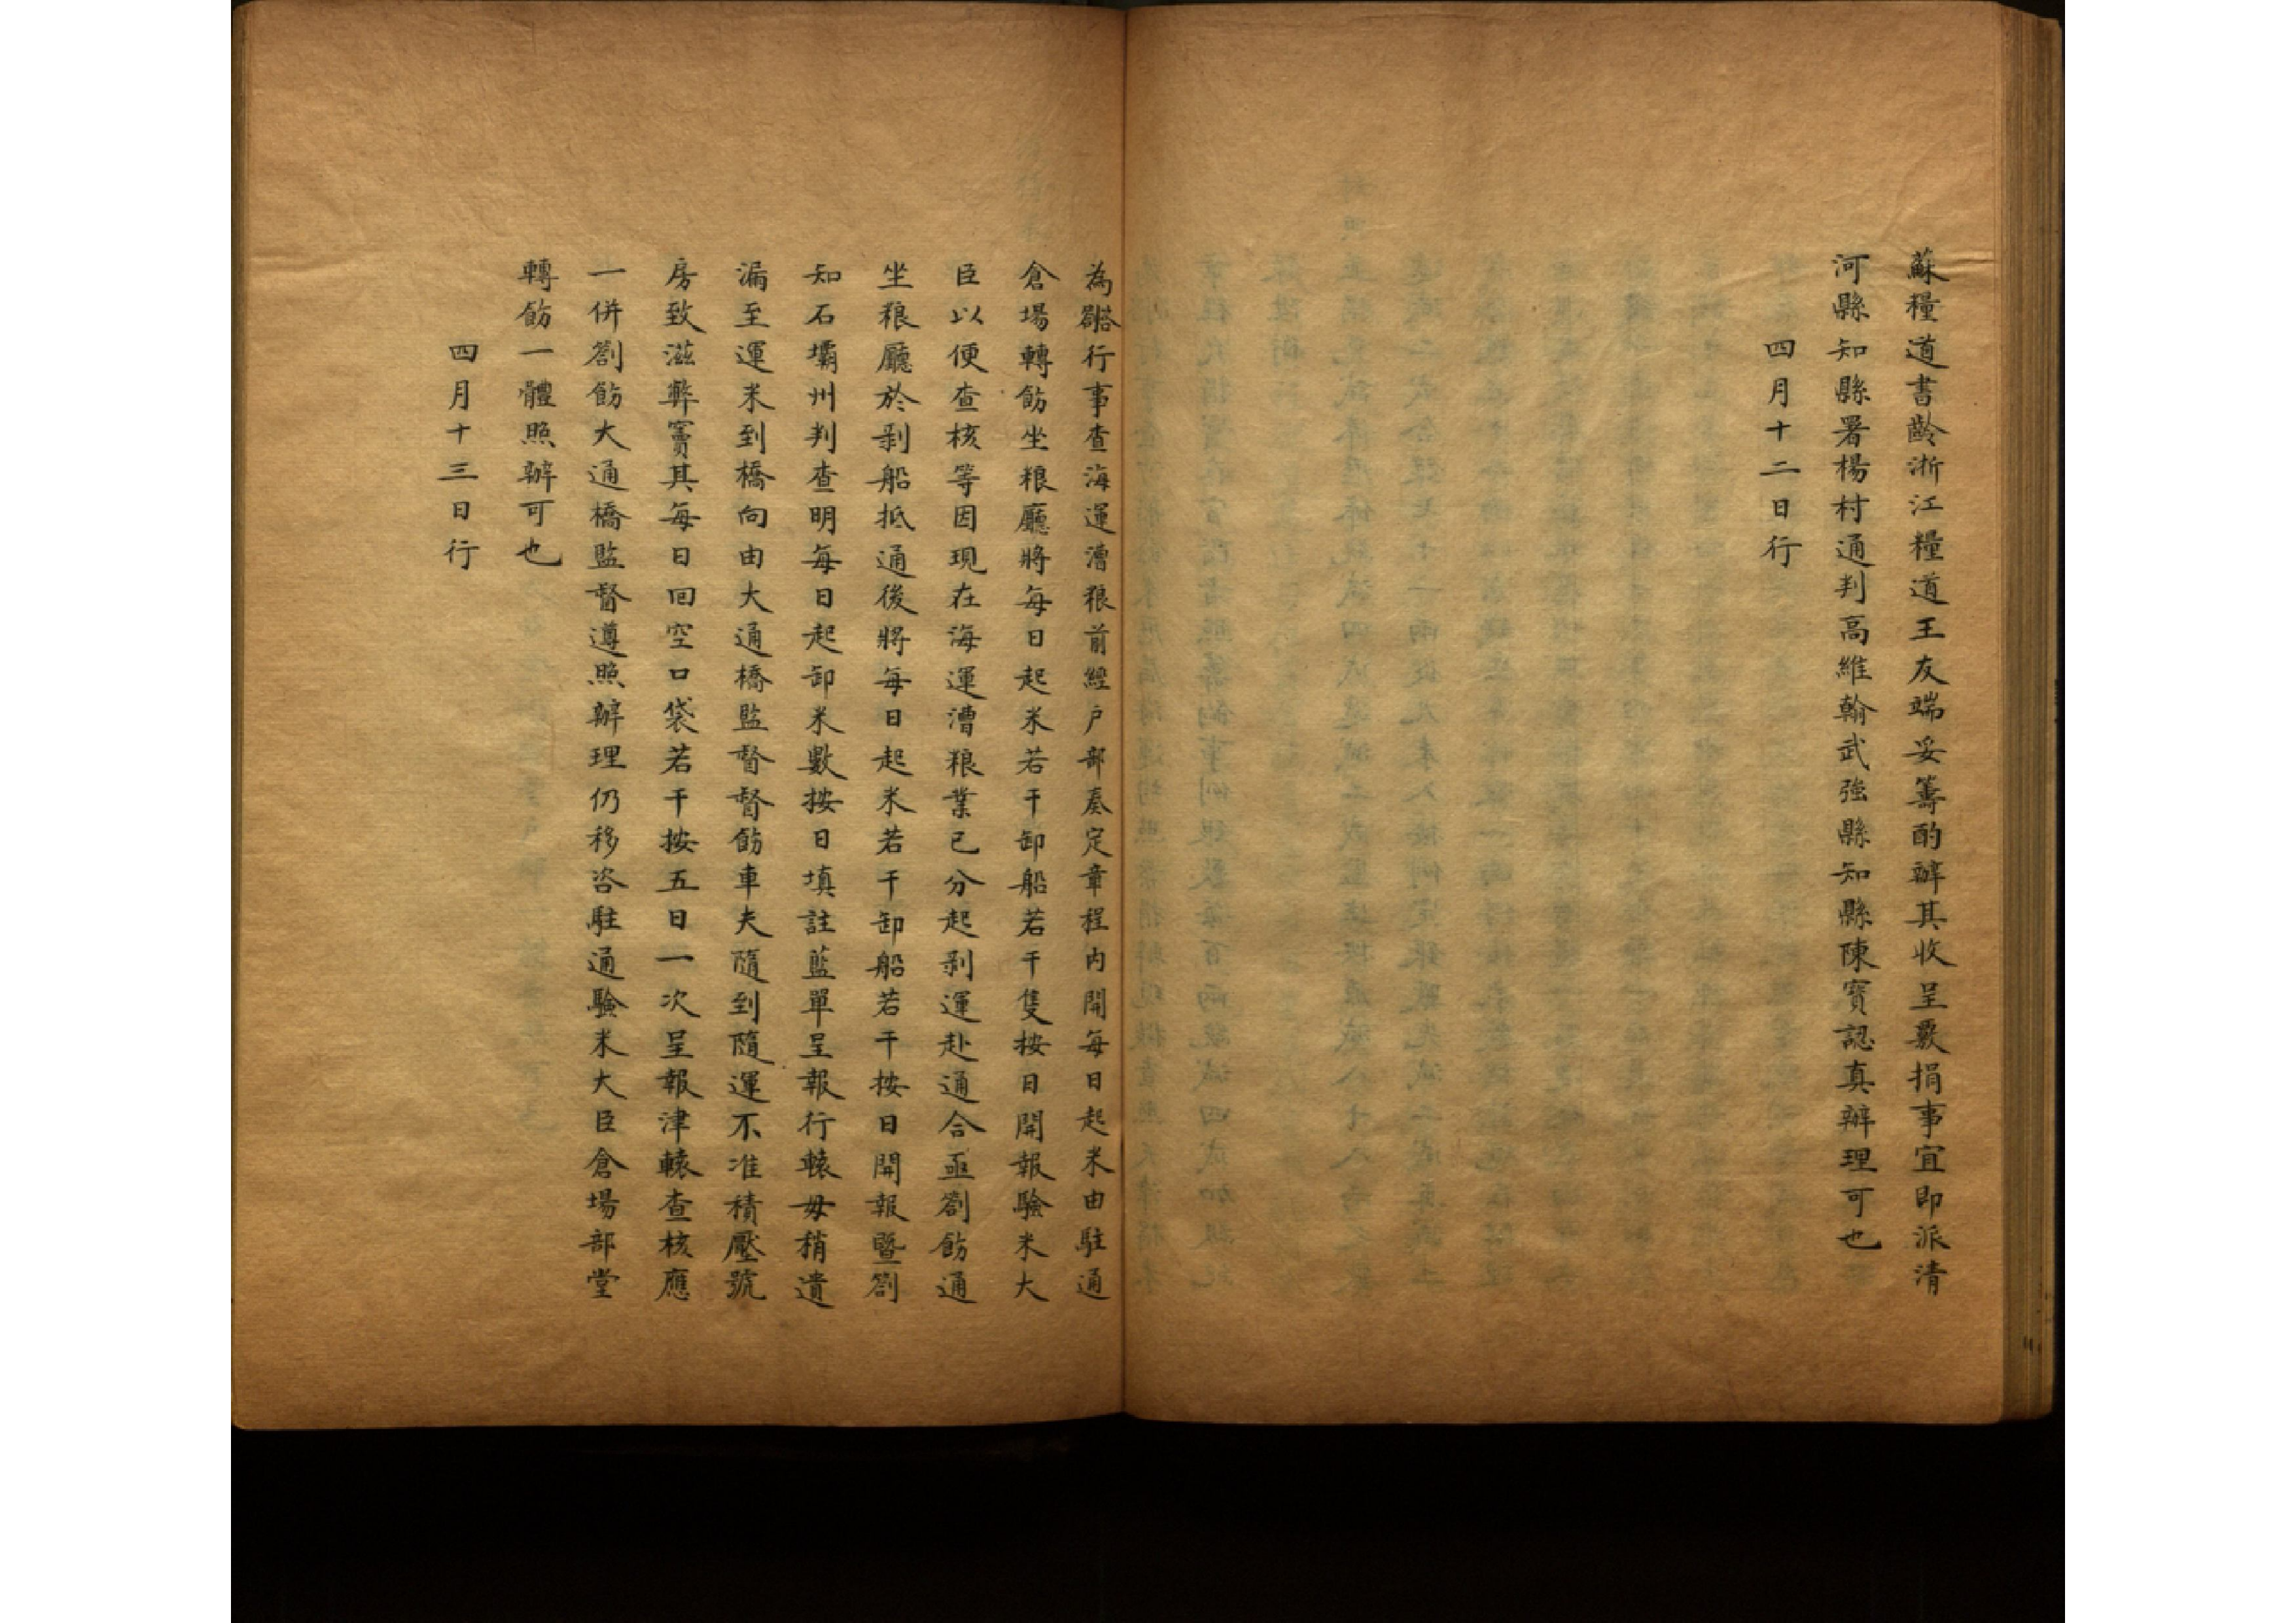 蘇糧道書齡浙江糧道王友端妥籌酌辦其收呈覈捐事宜即派清
河縣知縣署楊村通判高維翰武強縣知縣陳寶認真辦理可也
四月十二日行
為劄行事查海運漕粮前經户部奏定章程内開每日起米由駐通
倉場轉飭坐粮廳將每日起米若干卸船若干隻按日開報驗米大
臣以便查核等因現在海運漕粮業已分起剥運赴通合亟劄飭通
坐粮廳於剥船抵通後將每日起米若干卸船若干按日開報暨劄
知石壩州判查明每日起卸米數按日填註藍單呈報行轅毋稍遺
漏至運米到橋向由大通橋監督督飭車夫隨到隨運不准積壓號
房致滋弊竇其每日回空口袋若干按五日一次呈報津轅查核應
一併劄飭大通橋監督遵照辦理仍移咨駐通驗米大臣倉場部堂
轉飭一體照辦可也
四月十三日行